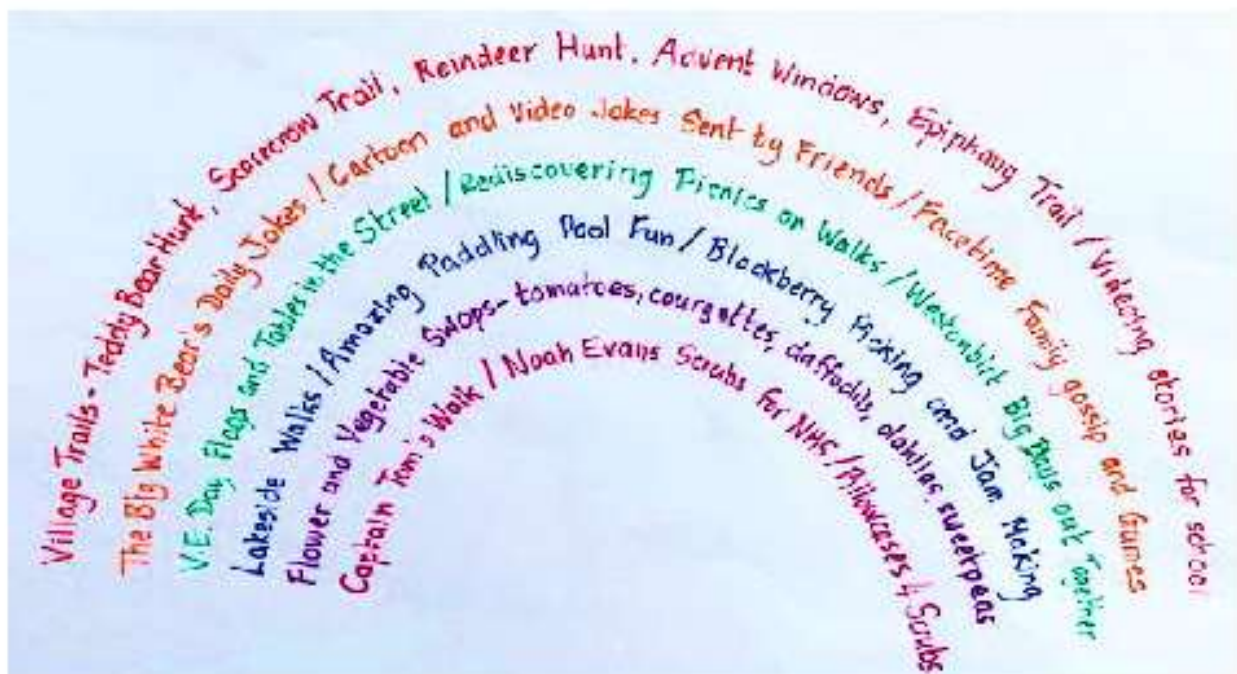 Village Trails - Teddy Bear Hunt, Scarecrow Trail, Reindeer Hunt, Advent Windows, Epiphany Trail / Videoing stories for school
The Big White Bear's Daily Jokes / Cartoon and Video Jokes Sent by Friends / Facetime Family gossip and Games
V.E. Day Flags and Tables in the Street / Rediscovering Picnics on Walks / Westonbirt Big Days out Together
Lakeside Walks / Amazing Paddling Pool Fun / Blackberry Picking and Jam Making
Flower and Vegetable Swops - tomatoes, courgettes, daffodils, dahlias, sweetpeas
Captain Tom's Walk / Noah Evans Scrubs for NHS / Pillowcases 4 Scrubs